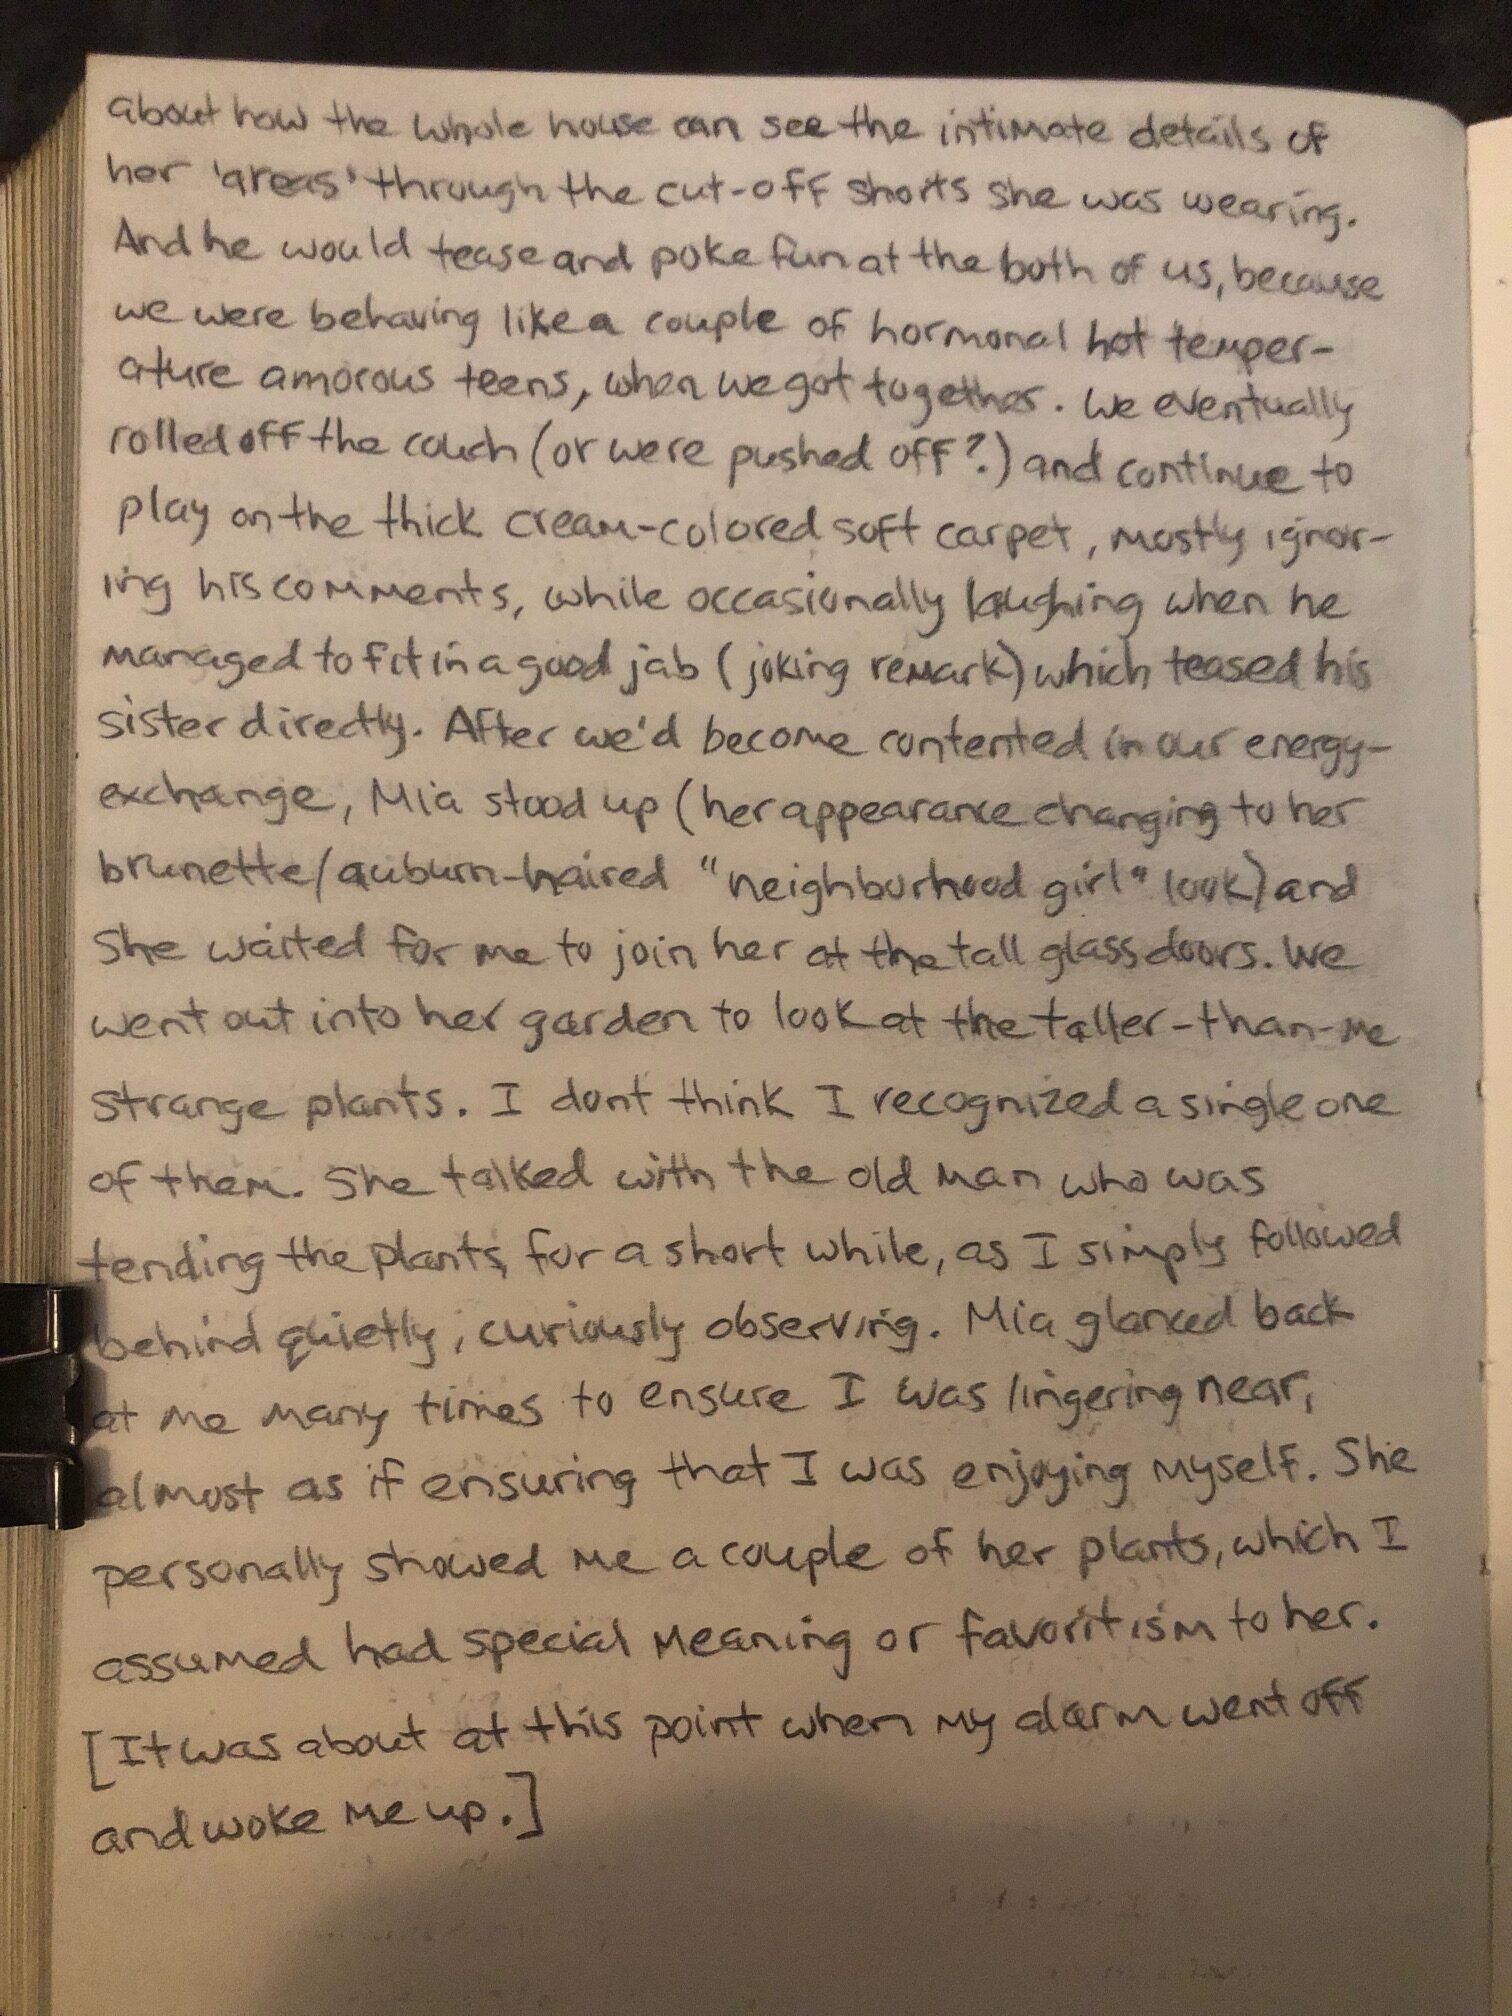 about how the whole house can see the intimate details of
her 'areas' through the cut-off shorts she was wearing.
And he would tease and poke fun at the both of us, because
we were behaving like a couple of hormonal hot temper-
ature amorous teens, when we got together. We eventually
rolled off the couch (or were pushed off?) and continue to
play on the thick cream-colored soft carpet, mostly ignor-
ing his comments, while occasionally laughing when he
managed to fit in a good jab (joking remark) which teased his
sister directly. After we'd become contented in our energy-
exchange, Mia stood up (her appearance changing to her
brunette/auburn-haired "neighborhood girl" look) and
she waited for me to join her at the tall glass doors. We
went out into her garden to look at the taller-than-me
strange plants. I dont think I recognized a single one
of them. She talked with the old man who was
tending the plants for a short while, as I simply followed
behind quietly, curiously observing. Mia glanced back
at me many times to ensure I was lingering near,
almost as if ensuring that I was enjoying myself. She
personally showed me a couple of her plants, which I
assumed had special meaning or favoritism to her.
[It was about at this point when my alarm went off
and woke me up.]